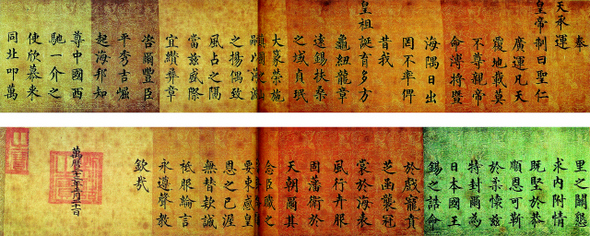 奉
天承運
皇帝制曰聖仁
廣運凡天
覆地載莫
不尊親帝
命溥將暨
海隅日出
罔不率俾
昔我
皇祖誕育多方
龜紐龍章
遠錫扶桑
之域貞珉
大篆榮施
之揚偶致
風占之隔
當茲盛際
宜纘彝章
咨爾豐臣
平秀吉崛
起海邦知
尊中國西
馳一介之
使欣慕來
同北叩萬
里之關懇
求內附情
既堅於恭
順恩可靳
於柔懷茲
特封爾為
日本國王
錫之誥命
於戲寵賁
芝函襲冠
裳於海表
風行卉服
固藩衛於
天朝爾其
念臣職之
要束感皇
恩之已渥
無替款誠
祗服綸言
永遵聲教
欽哉